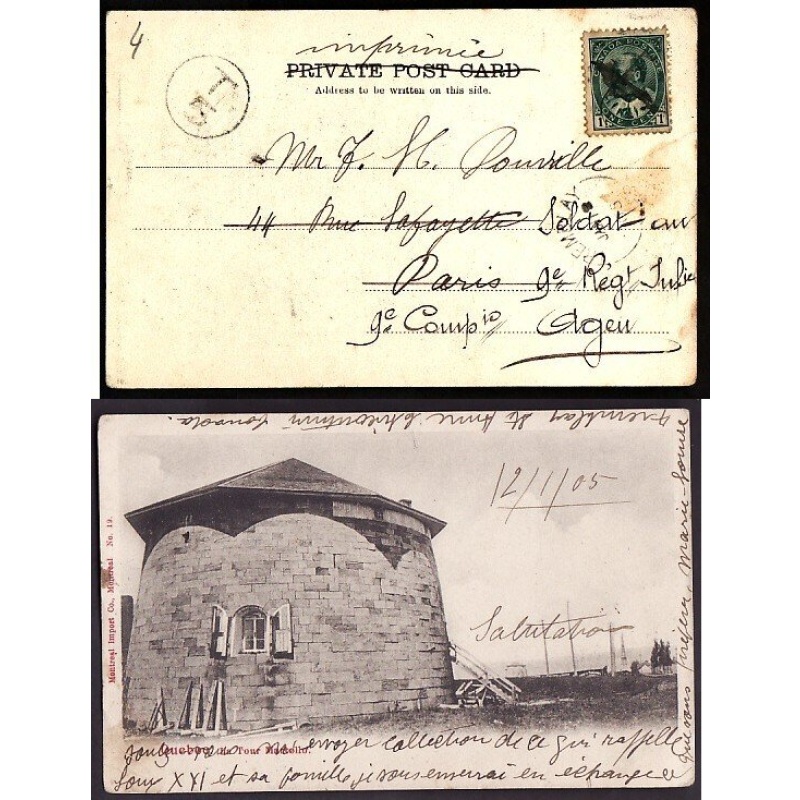 4
imprimée
PRIVATE POST CARD
Address to be written on this side.
T
CANADA POSTAGE
1 ONE CENT 1
Mr F. H. Douville
44 Rue Lafayette Soldat au
Paris 9e Régt
9e Compie Agen
TREMBLAY
12/1/05
Salutation
Montreal Import Co., Montreal No. 19.
Quebec, La Tour Martello.
envoyer collection de ce qui rappelle
Louis XVI et sa famille, je vous enverrai en échange ce
que vous préférez, Marie-Louise
Tremblay Ste Anne Chicoutimi Canada.